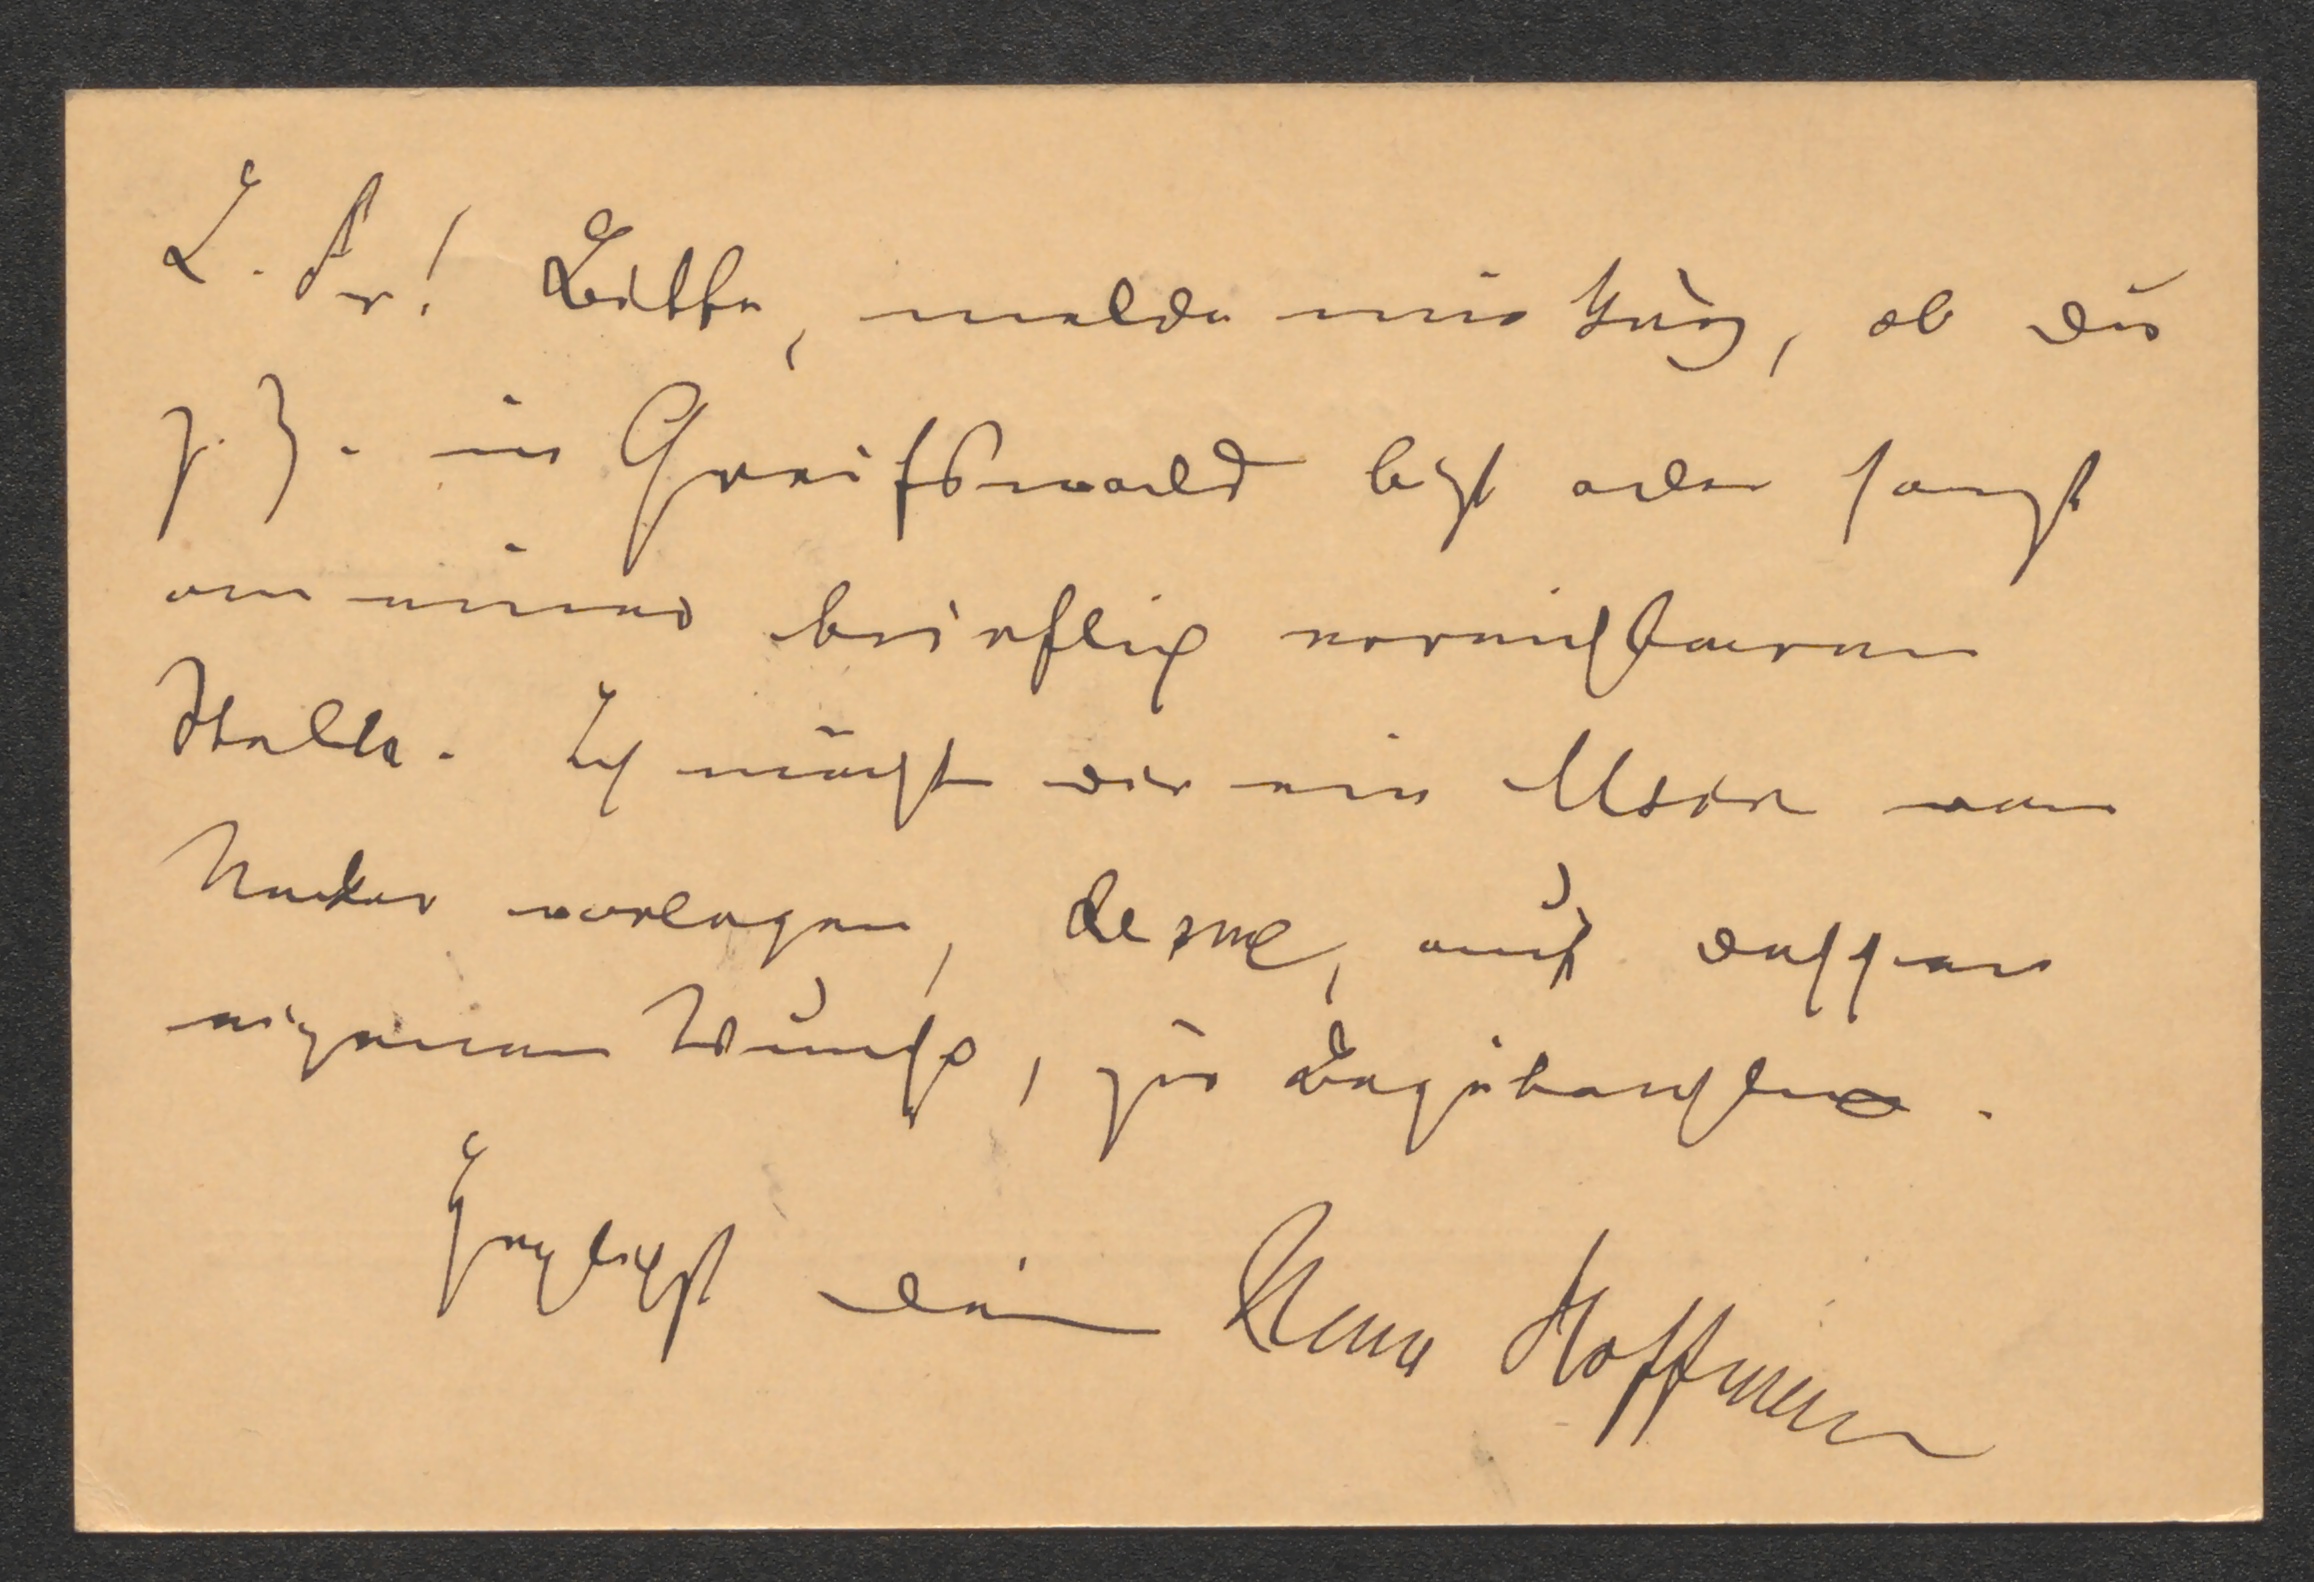 L. Pr! Bitte, melde mir kurz, ob Du
z. Z. in Greifswald bist oder sonst
an einer brieflich erreichbaren
Stelle. Ich möchte Dir ein Mscr von
Naeker vorlegen, de syne, auf dessen
eigenen Wunsch, zur Begutachtung.
Herzlichst Dein Hoffmann